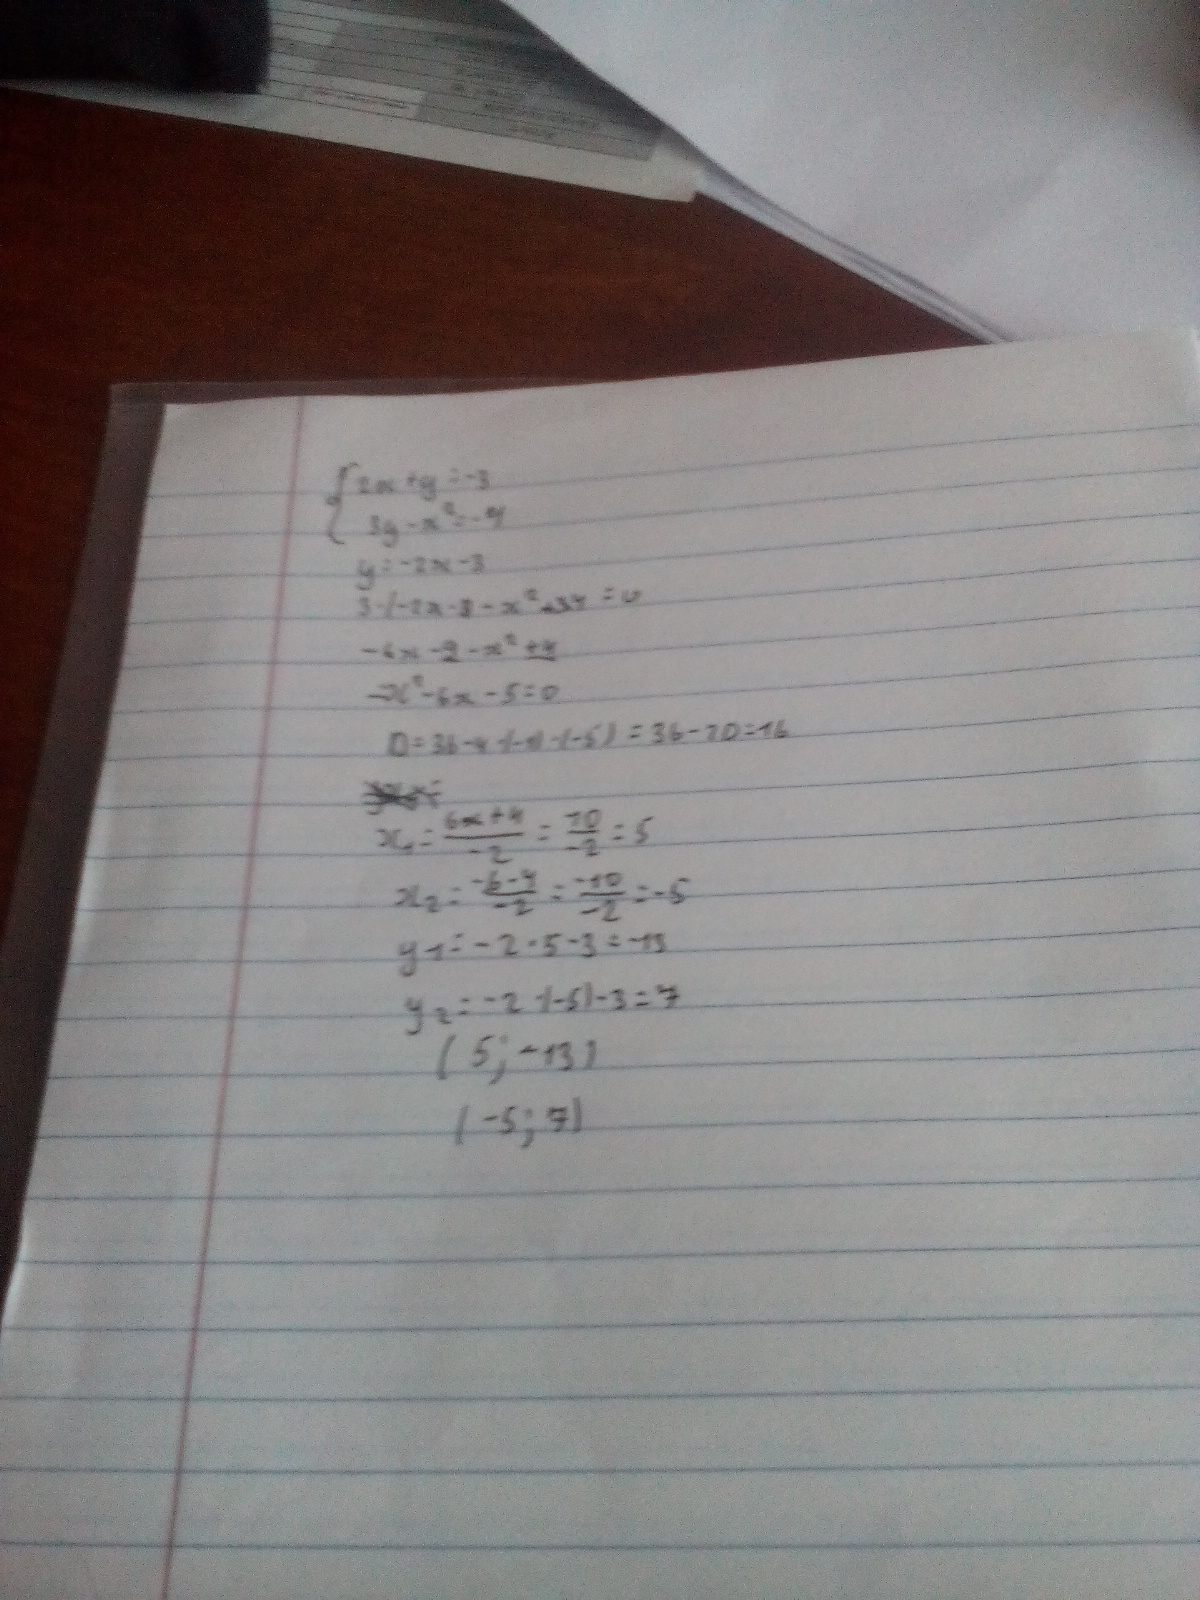 2x+y=-3
3y-x²=-4
y=-2x-3
-6x-9-x²+4
-x²-6x-5=0
D=36-4·(-1)·(-5)=36-20=16
x₁=6x+4/-2=10/-2=5
x₂=-6-4/-2=-10/-2=-5
y₁=-2·5-3=-13
y₂=-2·(-5)-3=7
(5;-13)
(-5;7)